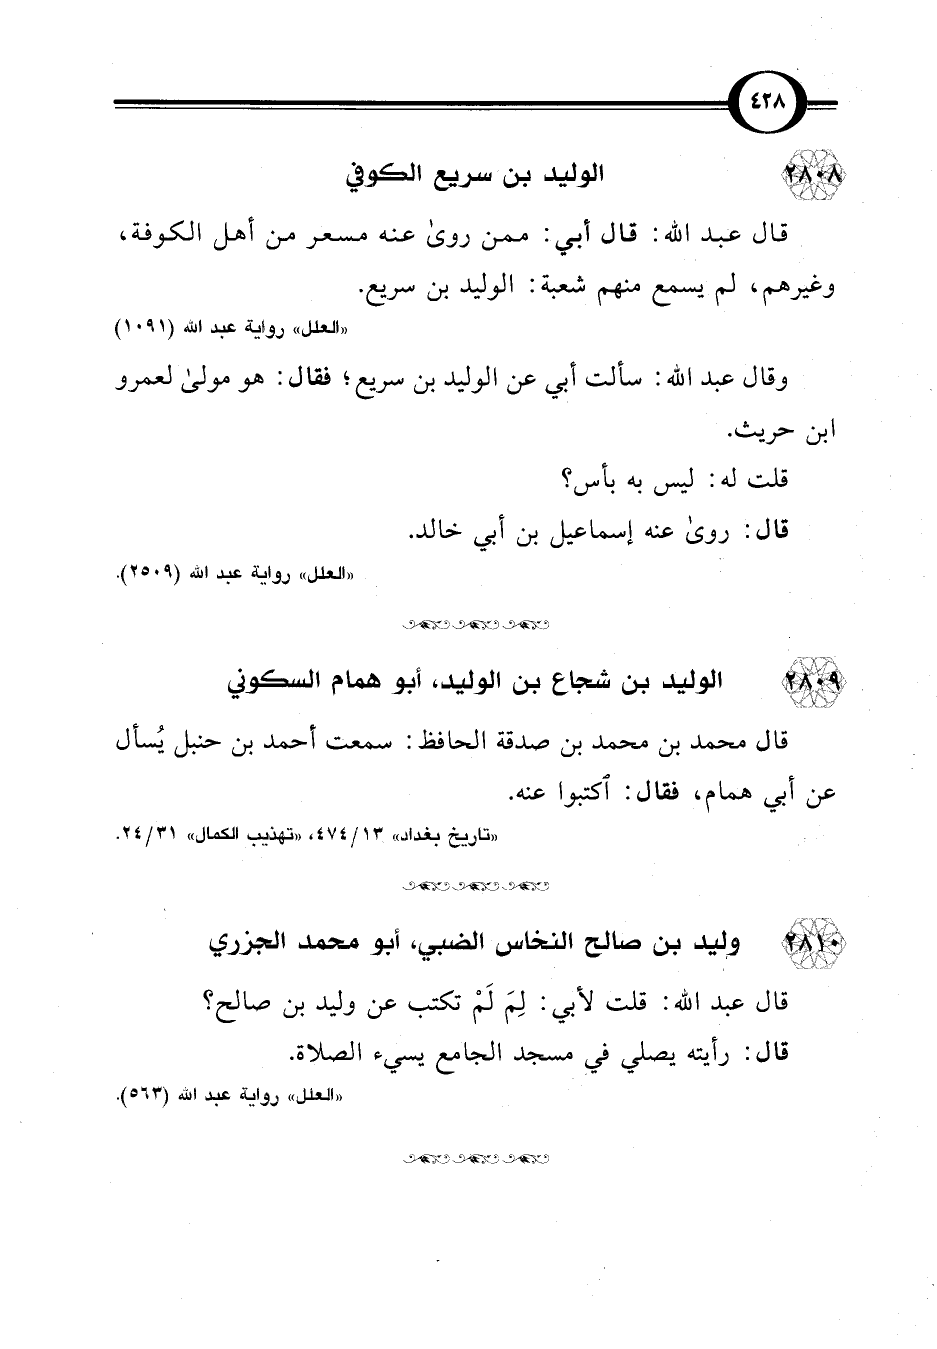 ٤٢٨
٢٨٠٨ الوليد بن سريع الكوفي
قال عبد الله: قال أبي: ممن روىٰ عنه مسعر من أهل الكوفة،
وغيرهم، لم يسمع منهم شعبة: الوليد بن سريع.
«العلل» رواية عبد الله (١٠٩١)
وقال عبد الله: سألت أبي عن الوليد بن سريع؛ فقال: هو مولىٰ لعمرو
ابن حريث.
قلت له: ليس به بأس؟
قال: روىٰ عنه إسماعيل بن أبي خالد.
«العلل» رواية عبد الله (٢٥٠٩).
٢٨٠٩ الوليد بن شجاع بن الوليد، أبو همام السكوني
قال محمد بن محمد بن صدقة الحافظ: سمعت أحمد بن حنبل يُسأل
عن أبي همام، فقال: ٱكتبوا عنه.
«تاريخ بغداد» ١٣/ ٤٧٤، «تهذيب الكمال» ٣١/ ٢٤.
٢٨١٠ وليد بن صالح النخاس الضبي، أبو محمد الجزري
قال عبد الله: قلت لأبي: لِمَ لَمْ تكتب عن وليد بن صالح؟
قال: رأيته يصلي في مسجد الجامع يسيء الصلاة.
«العلل» رواية عبد الله (٥٦٣).